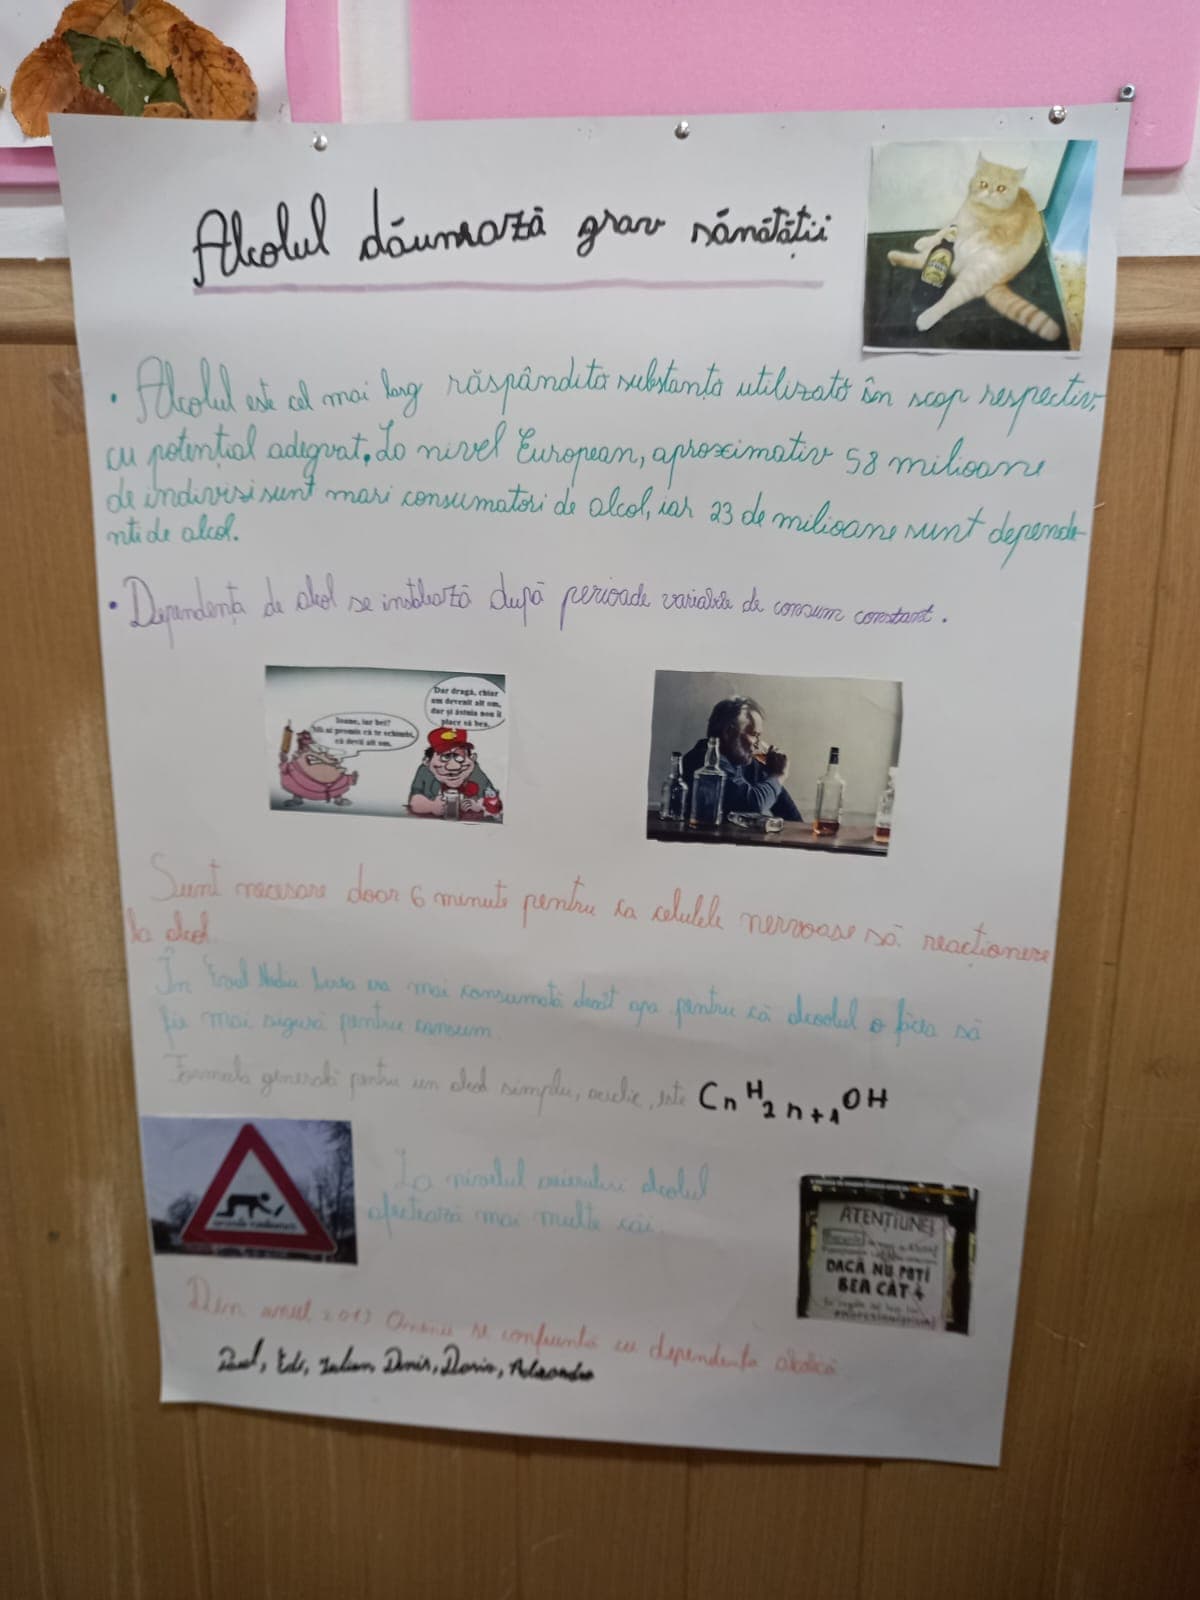 Alcolul dăunează grav sănătății
• Alcolul este cel mai larg răspândita substanța utilizată în scop respectiv,
cu potențial adegvat. La nivel European, aproximativ 58 milioane
de indivisi sunt mari consumatori de alcol, iar 23 de milioane sunt depende-
nti de alcol.
• Dependența de alcol se instalează după perioade variabile de consum constant.
Ioane, iar bei?
Mi-ai promis că te schimbi,
că devii alt om.
Dar dragă, chiar
am devenit alt om,
dar și ăstuia nou îi
place să bea.
Sunt necesare doar 6 minute pentru ca celulele nervoase să reacționeze
la alcol.
În Evul Mediu berea era mai consumată decât apa pentru că alcoolul o făcea să
fie mai sigură pentru consum.
Formula generală pentru un alcol simplu, aciclic, este CnH2n+1OH
La nivelul creierului alcolul
afectează mai multe căi.
ATENȚIUNE!
DACĂ NU POȚI
BEA CÂT
Din anul 2013 Omenii se confruntă cu dependența alcolică
Paul, Edi, Iulian, Denis, Daria, Alexandra